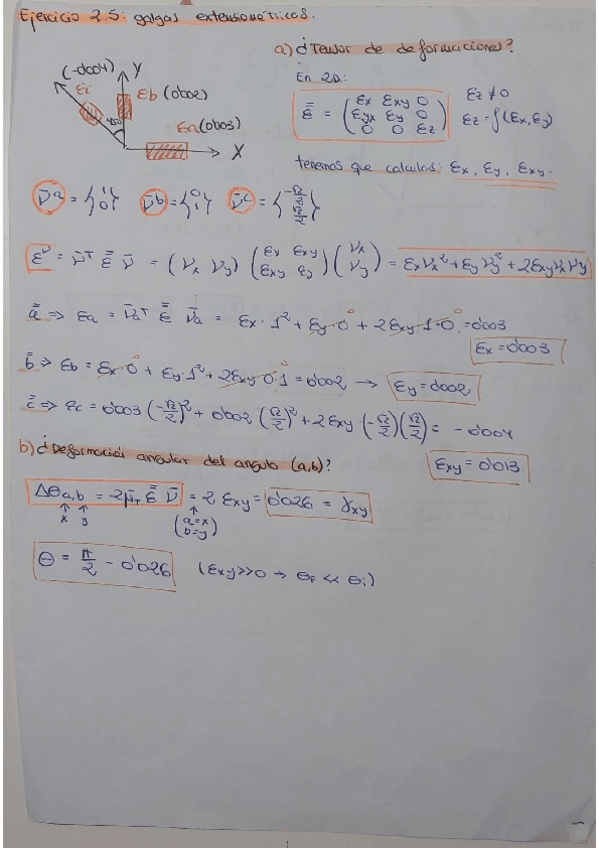 Ejercicio 2.5: galgas extensiométricas.
a) ¿Tensor de deformaciones?
(-0'004) Y
εc εb (0'002)
45º εa (0'003)
X
En 2D:
ε̿ = (εx εxy 0
εyx εy 0
0 0 εz)
εz ≠ 0
εz = f(εx, εy)
tenemos que calcular: εx, εy, εxy.
ν̄a = {1 0} ν̄b = {0 1} ν̄c = {-√2/2 √2/2}
εν = ν̄T ε̿ ν̄ = (νx νy) (εx εxy εxy εy) (νx νy) = εxνx² + εyνy² + 2εxyνxνy
a̿ ⇒ εa = ν̄aT ε̿ ν̄a = εx · 1² + εy · 0² + 2εxy · 1 · 0 = 0'003
εx = 0'003
b̿ ⇒ εb = εx · 0 + εy · 1² + 2εxy · 0 · 1 = 0'002 → εy = 0'002
c̿ ⇒ εc = 0'003 (-√2/2)² + 0'002 (√2/2)² + 2εxy · (-√2/2)(√2/2) = -0'004
εxy = 0'013
b) ¿Deformación angular del ángulo (a,b)?
Δθa,b = 2μ̄T ε̿ ν̄ = 2 εxy = 0'026 = γxy
x y (a=x
b=y)
θ = π/2 - 0'026 (εxy>>0 → θf << θi)